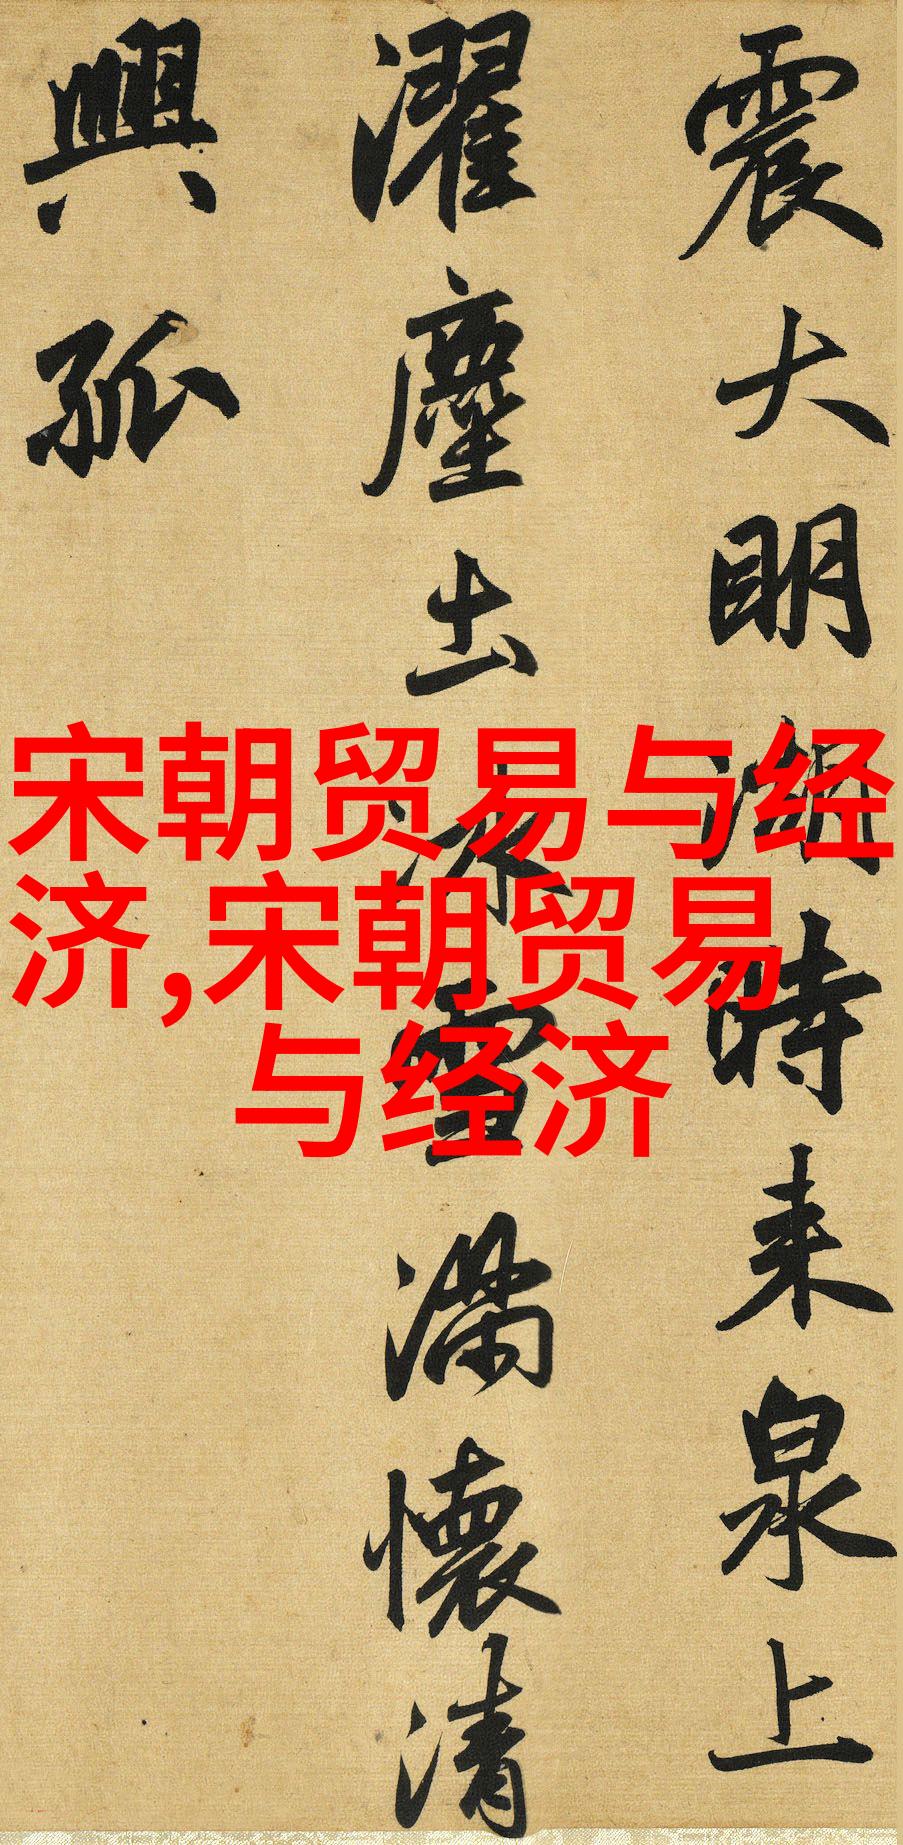 震大明湖時来泉上
濯塵出冰雪满懷清
興孤
宋朝贸易与经
济,宋朝贸易
与经济